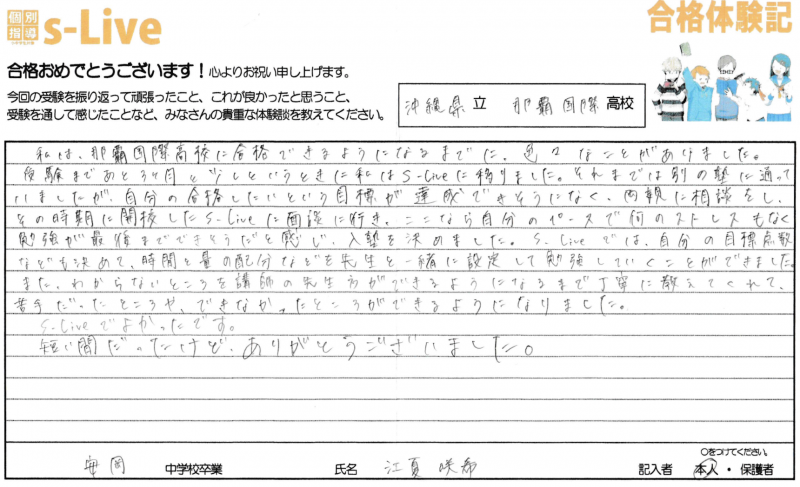 個別指導 s-Live
合格体験記
合格おめでとうございます！心よりお祝い申し上げます。
今回の受験を振り返って頑張ったこと、これが良かったと思うこと、
受験を通して感じたことなど、みなさんの貴重な体験談を教えてください。
沖縄県 立 那覇国際 高校
私は、那覇国際高校に合格できるようになるまでに、色々なことがありました。
受験まであと3ヶ月と少しというときに私はS-Liveに移りました。それまでは別の塾に通って
いましたが、自分の合格したいという目標が達成できそうになく、両親に相談をし、
その時期に開校したS-Liveに面談に行き、ここなら自分のペースで何のストレスもなく
勉強が最後までできそうだと感じ、入塾を決めました。S-Liveでは、自分の目標点数
なども決めて、時間と量の配分などを先生と一緒に設定して勉強していくことができました。
また、わからないところを講師の先生方ができるようになるまで丁寧に教えてくれて、
苦手だったところや、できなかったところができるようになりました。
S-Liveでよかったです。
短い間だったけど、ありがとうございました。
〇をつけてください。
安岡 中学校卒業 氏名 江夏 咲希 記入者 本人・保護者